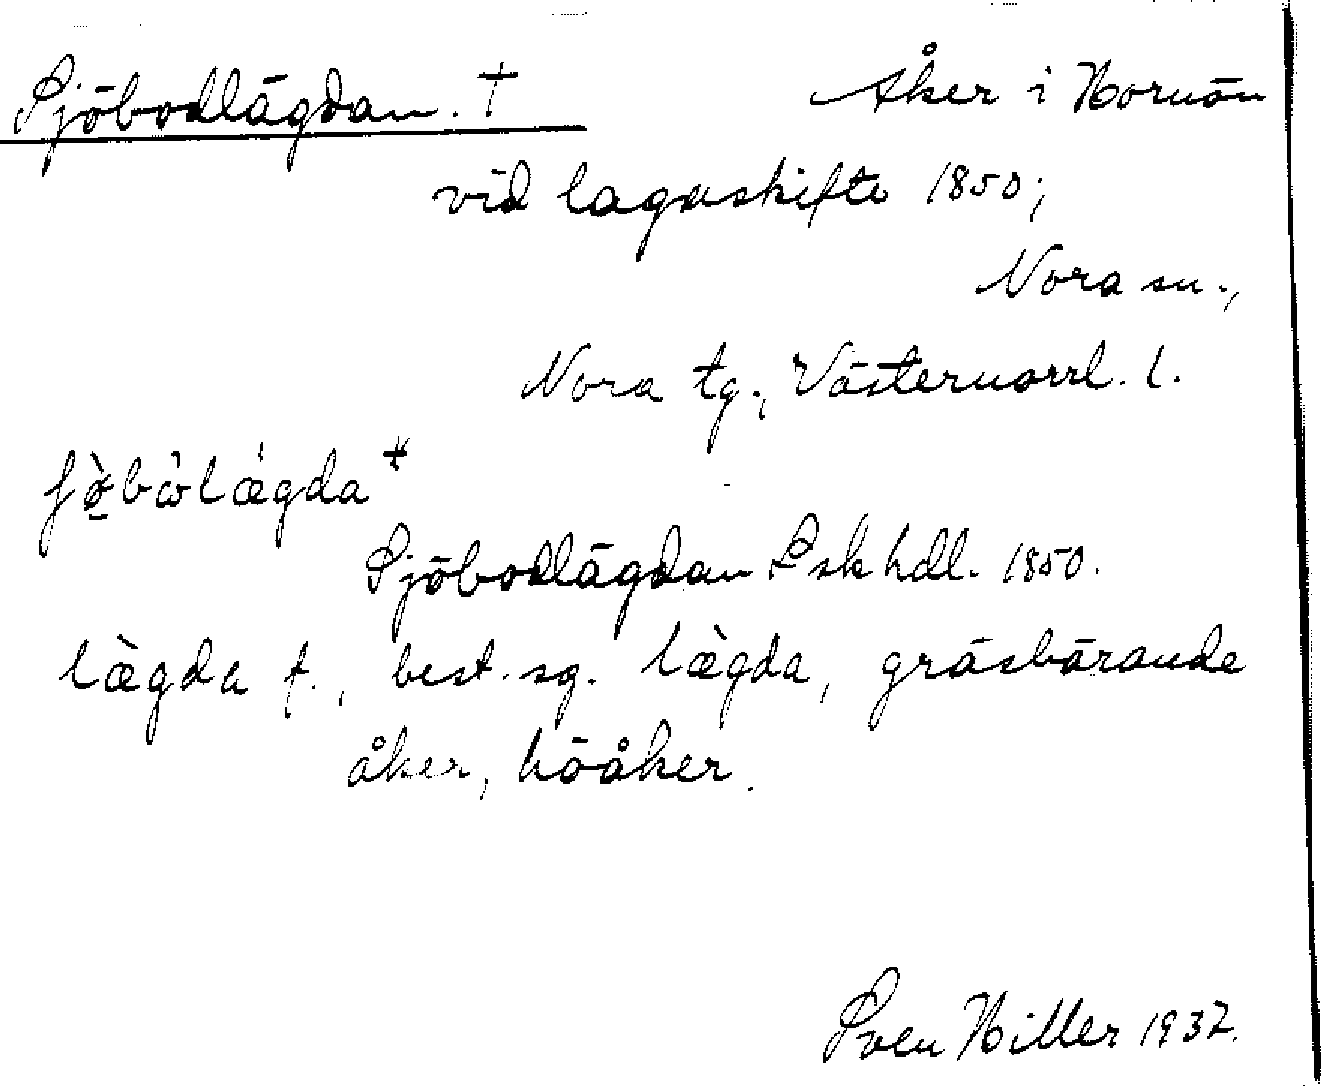 Sjöbodlägdan. † Åker i Hornön
vid lagaskifte 1850;
Nora sn.,
Nora tg., Västernorrl. l.
ʃø̀bὼlǽgda ‡
Sjöbodlägdan Lskhdl. 1850.
lægda f., best. sg. lægda, gräsbärande
åker, höåker.
Sven Hiller 1932.